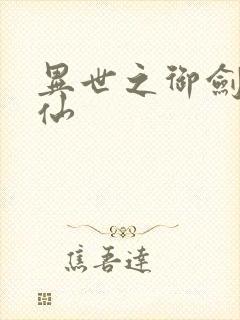 異世之御劍
仙
焦吾達